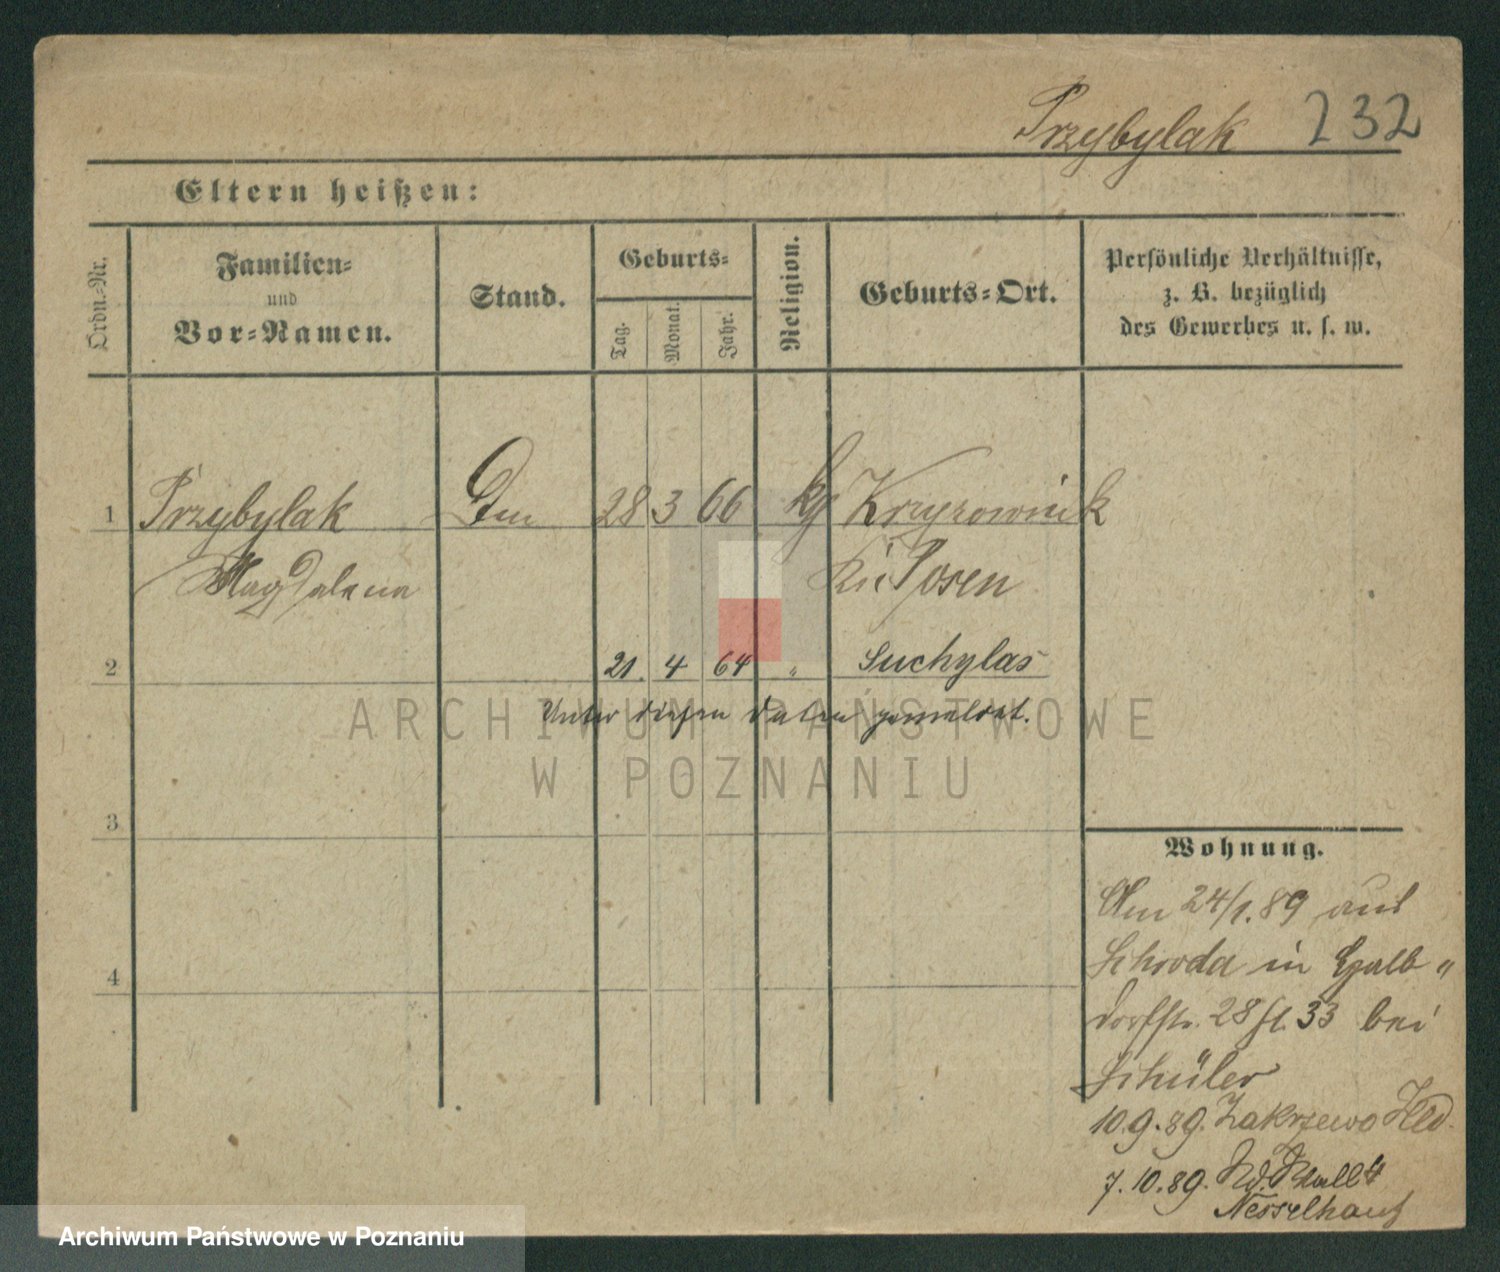 Przybylak 232
Eltern heißen:
Ordn.-Nr.
Familien-
und
Vor-Namen.
Stand.
Geburts-
Tag.
Monat.
Jahr.
Religion.
Geburts-Ort.
Persönliche Verhältnisse,
z. B. bezüglich
des Gewerbes u. s. w.
1 Przybylak 28 3 66 Krzyzownik
Magdalena Posen
2 21. 4 64 " Suchylas
Unter diesen Daten gemeldet.
ARCHIWUM PAŃSTWOWE
W POZNANIU
3
4
Wohnung.
Am 24/1. 89 aus
Schroda in Halb"
dorfstr. 28 33 bei
Schüler
10.9.89. Zakrzewo
7.10.89.
Nesselhauf
Archiwum Państwowe w Poznaniu